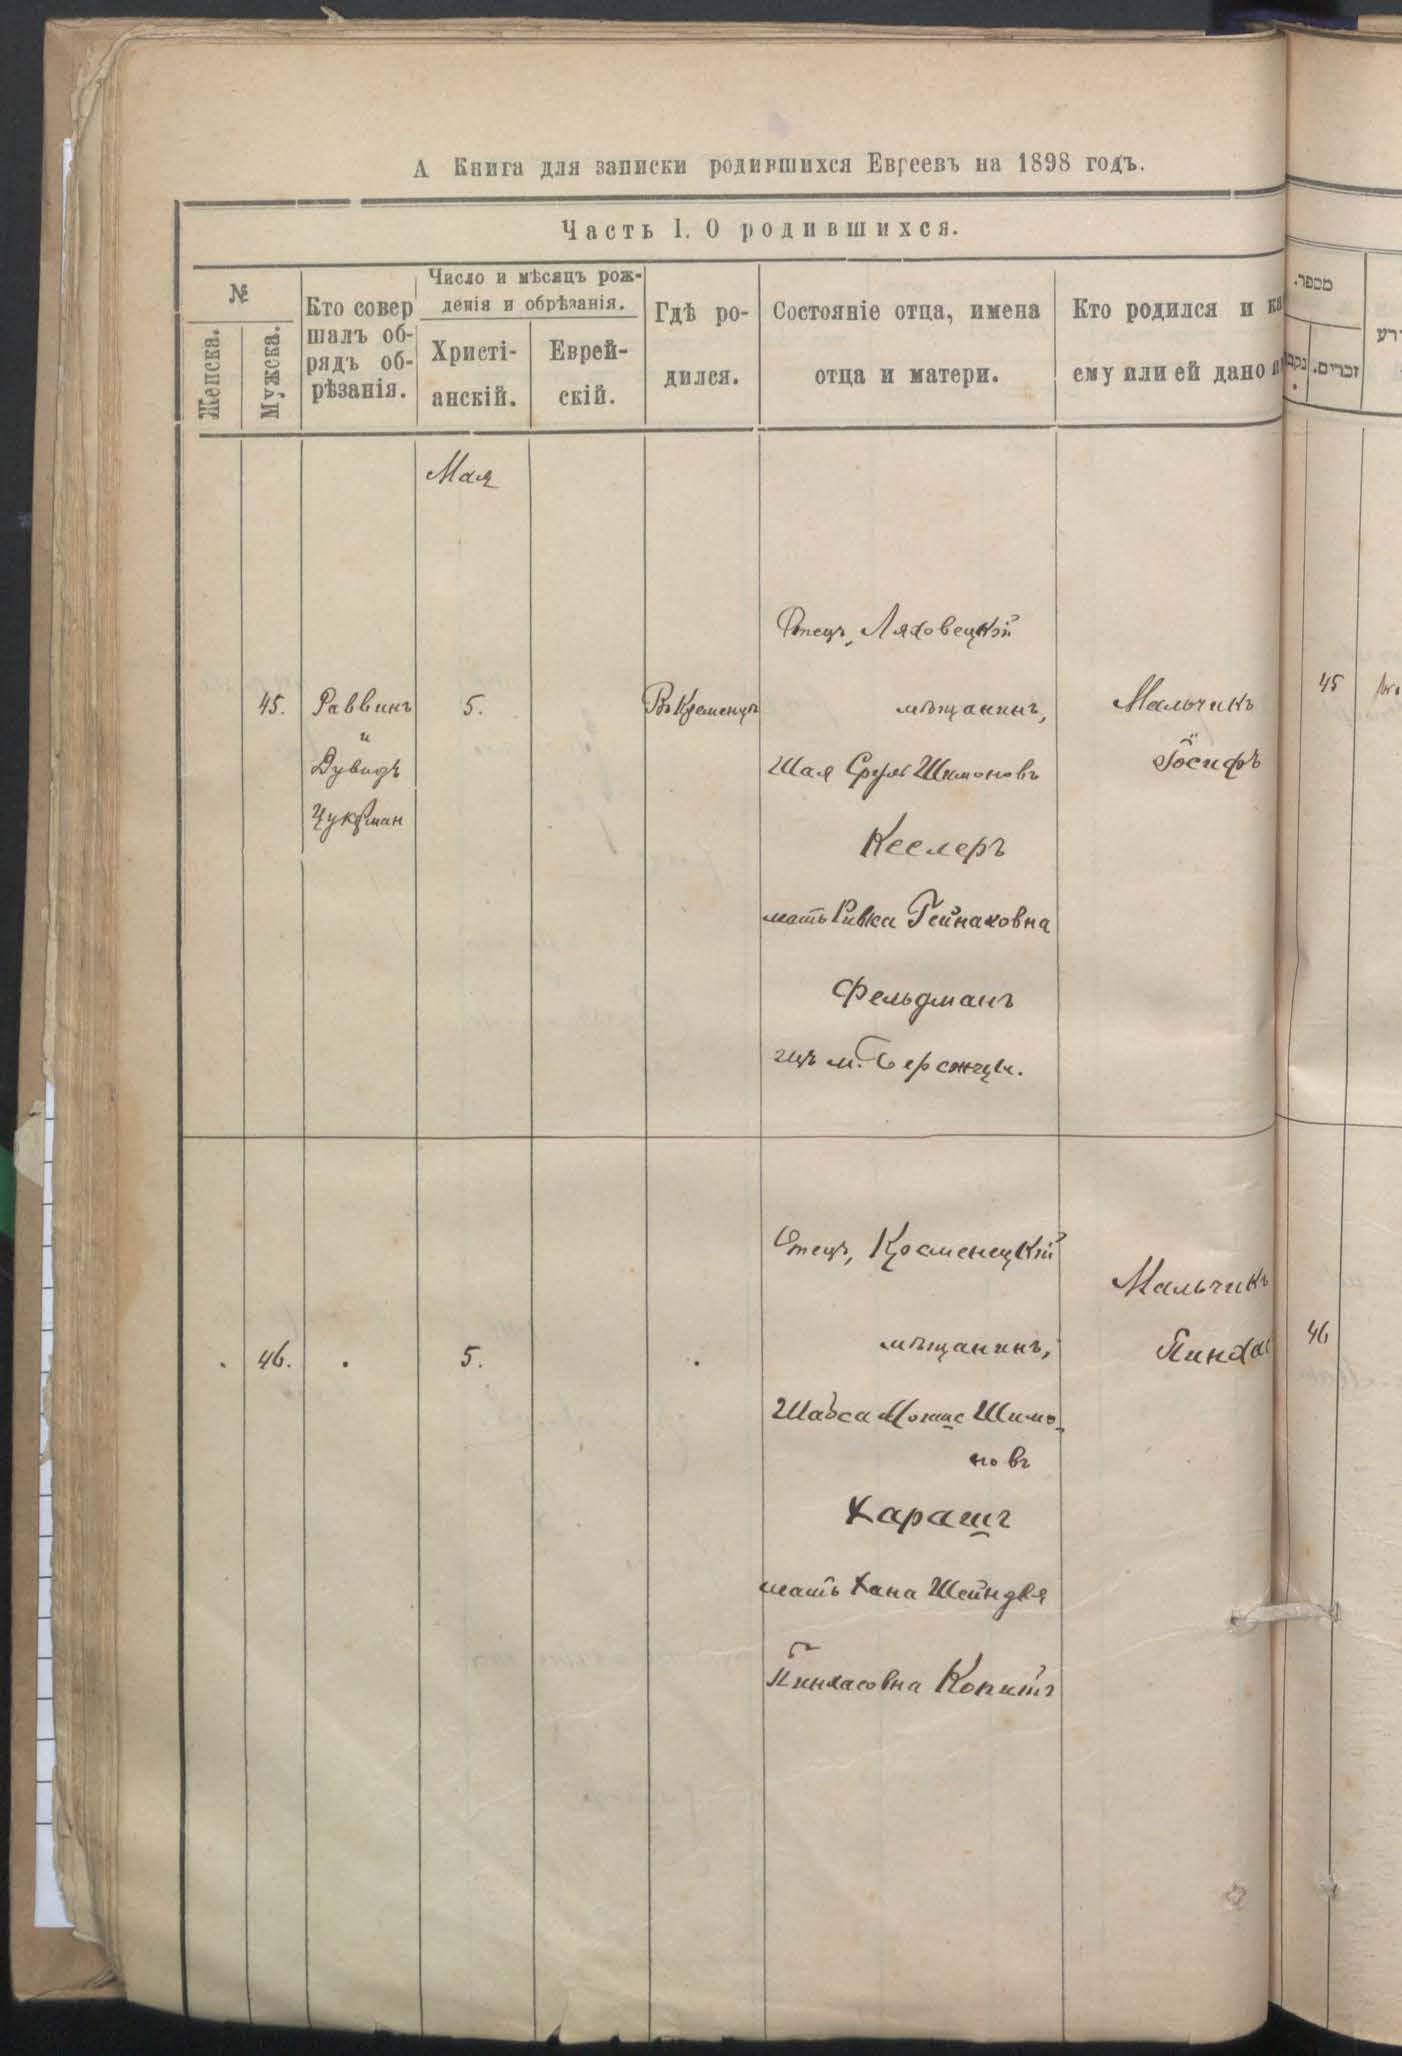 А Книга для записки родившихся Евреевъ на 1898 годъ.
Часть I. О родившихся.
№
Женска.
Мужска.
Кто совер
шалъ об-
рядъ об-
рѣзанія.
Число и мѣсяцъ рож-
денія и обрѣзанія.
Христі-
анскій.
Еврей-
скій.
Гдѣ ро-
дился.
Состояніе отца, имена
отца и матери.
Кто родился и ка
ему или ей дано
מספר.
זכרים.
Мая
45.
Раввинъ
и
Дувидъ
Цукерман
5.
Въ Кременцѣ
Отецъ, Ляховецкій
мѣщанинъ,
Шая Сруль Шимоновъ
Кеслеръ
мать Ривка Гейнаховна
Фельдманъ
изъ м. Бережцы.
Мальчикъ
Іосифъ
45
. 46. . 5. .
Отецъ, Кременецкій
мѣщанинъ,
Шабса Мошко Шимо-
новъ
Харашъ
мать Хана Шейндля
Пинхасовна Копитъ
Мальчикъ
Пинхас
46